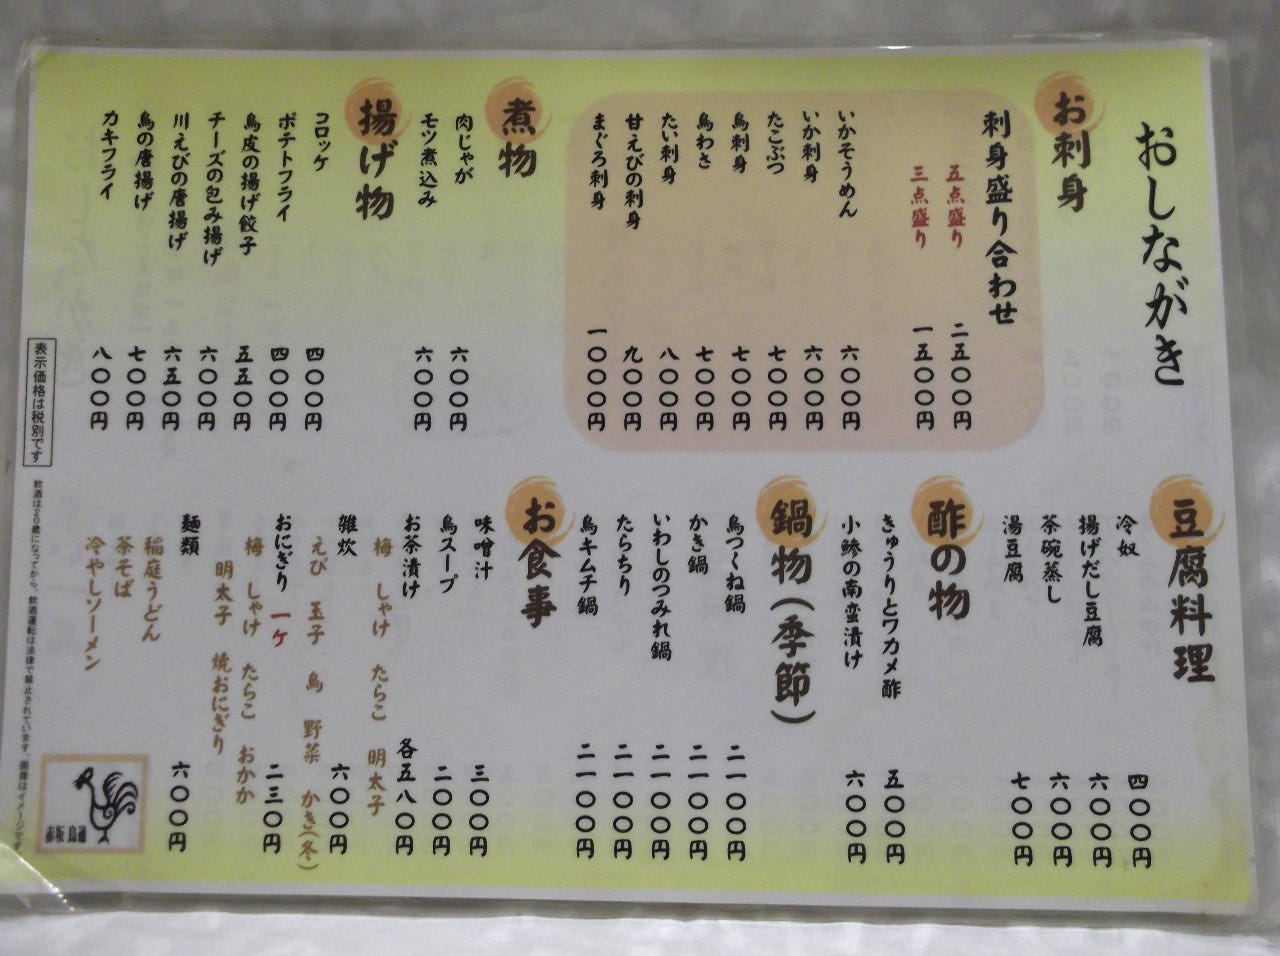 おしながき
お刺身
刺身盛り合わせ
五点盛り 二五〇〇円
三点盛り 一五〇〇円
いかそうめん 六〇〇円
いか刺身 六〇〇円
たこぶつ 七〇〇円
鳥刺身 七〇〇円
鳥わさ 七〇〇円
たい刺身 八〇〇円
甘えびの刺身 九〇〇円
まぐろ刺身 一〇〇〇円
煮物
肉じゃが 六〇〇円
モツ煮込み 六〇〇円
揚げ物
コロッケ 四〇〇円
ポテトフライ 四〇〇円
鳥皮の揚げ餃子 五五〇円
チーズの包み揚げ 六〇〇円
川えびの唐揚げ 六五〇円
鳥の唐揚げ 七〇〇円
カキフライ 八〇〇円
表示価格は税別です
豆腐料理
冷奴 四〇〇円
揚げだし豆腐 六〇〇円
茶碗蒸し 六〇〇円
湯豆腐 七〇〇円
酢の物
きゅうりとワカメ酢 五〇〇円
小鯵の南蛮漬け 六〇〇円
鍋物(季節)
鳥つくね鍋 二一〇〇円
かき鍋 二一〇〇円
いわしのつみれ鍋 二一〇〇円
たらちり 二一〇〇円
鳥キムチ鍋 二一〇〇円
お食事
味噌汁 三〇〇円
鳥スープ 二〇〇円
お茶漬け 各五八〇円
梅 しゃけ たらこ 明太子
雑炊 六〇〇円
えび 玉子 鳥 野菜 かき(冬)
おにぎり 一ケ 二三〇円
梅 しゃけ たらこ おかか
明太子 焼おにぎり
麺類 六〇〇円
稲庭うどん
茶そば
冷やしソーメン
飲酒は20歳になってから。飲酒運転は法律で禁止されています。画像はイメージです。